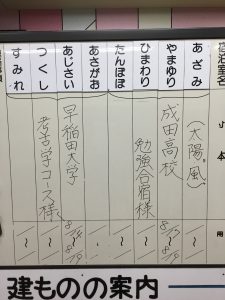 宿泊室名
あざみ
やまゆり
ひまわり
たんぽぽ
あさがお
あじさい
つくし
すみれ
(太陽風)
成田高校
勉強合宿様
早稲田大学
考古学コース様
本
用
〜
〜
〜
〜
〜
〜
建ものの案内